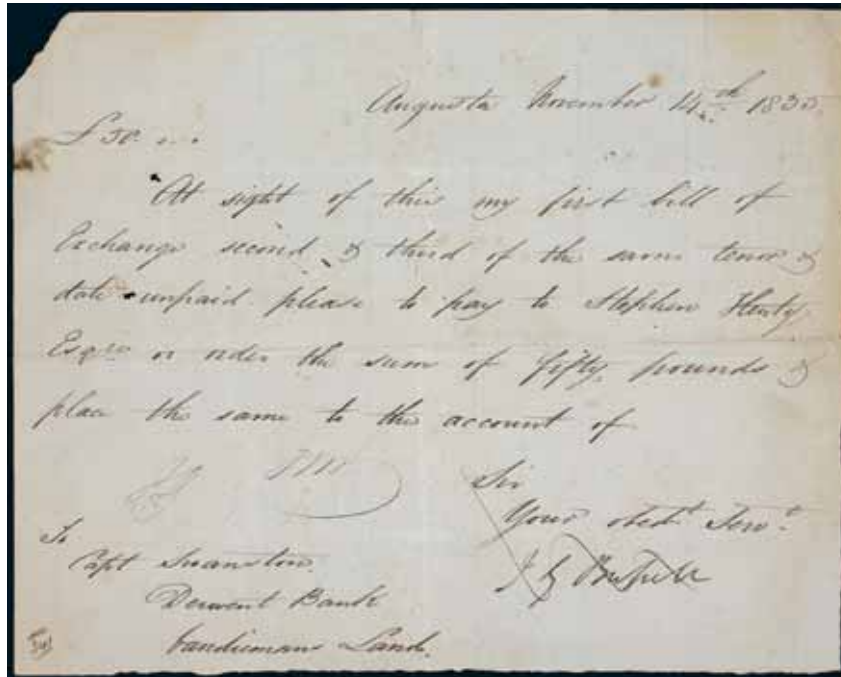 Augusta November 14th 1833.
£50 ...
At sight of this my first bill of
Exchange second & third of the same tenor &
date unpaid please to pay to Stephen Henty
Esqre or order the sum of fifty pounds &
place the same to the account of
Sir
Your obedt Servt
J G Bussell
To
Capt Swanston
Derwent Bank
Vandiemans Land.